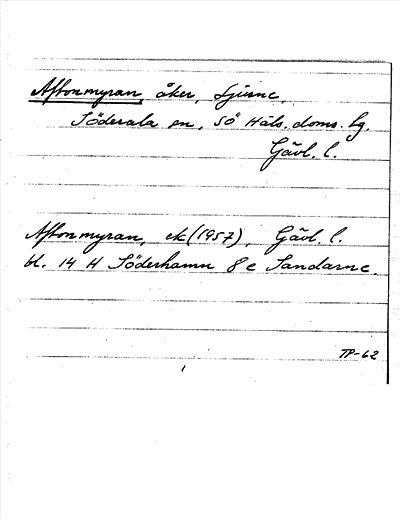 Aftonmyran, åker, Ljusne,
Söderala sn, SÖ Häls. doms. sg.
Gävl. l.
Aftonmyran, ek (1957), Gävl. l.
bl. 14 H Söderhamn 8 e Sandarne
TP-62